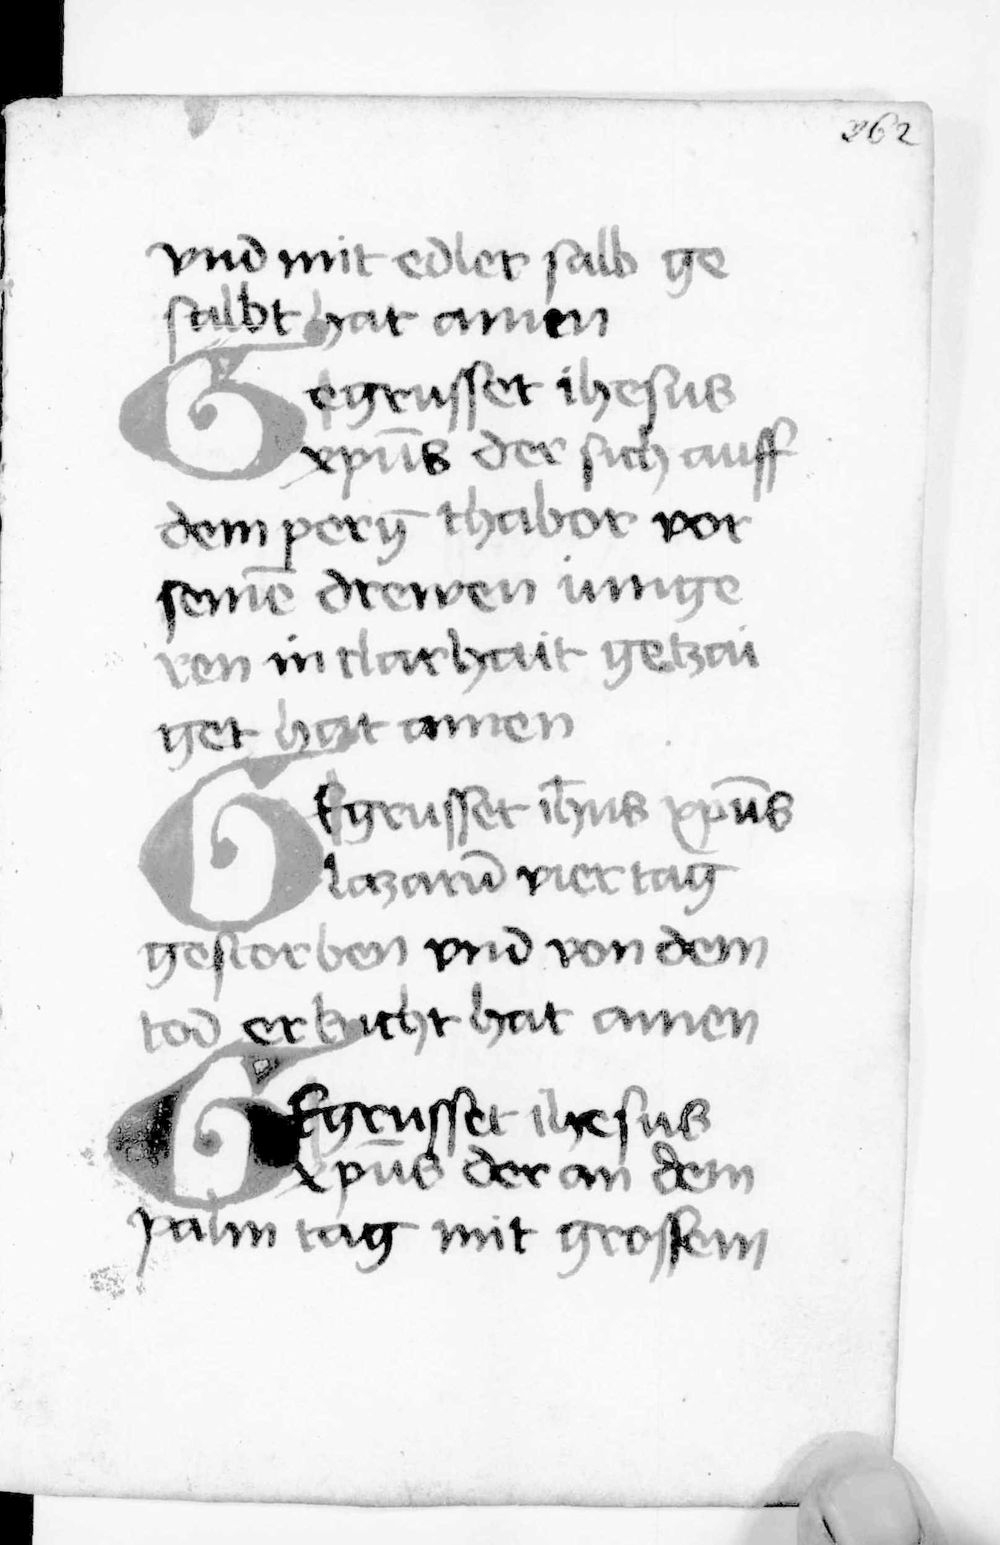 262
vnd mit edler salb ge
salbt hat amen
Gegrusset ihesus
xpūs der sich auff
dem perg thabor vor
seinē drewen iunge
ren in clarhait getzai
get hat amen
GEgrusset ihūs xpūs
lazarū vier tag
gestorben vnd von dem
tod erkucht hat amen
GEgrusset ihesus
xpūs der an dem
palm tag mit grossem